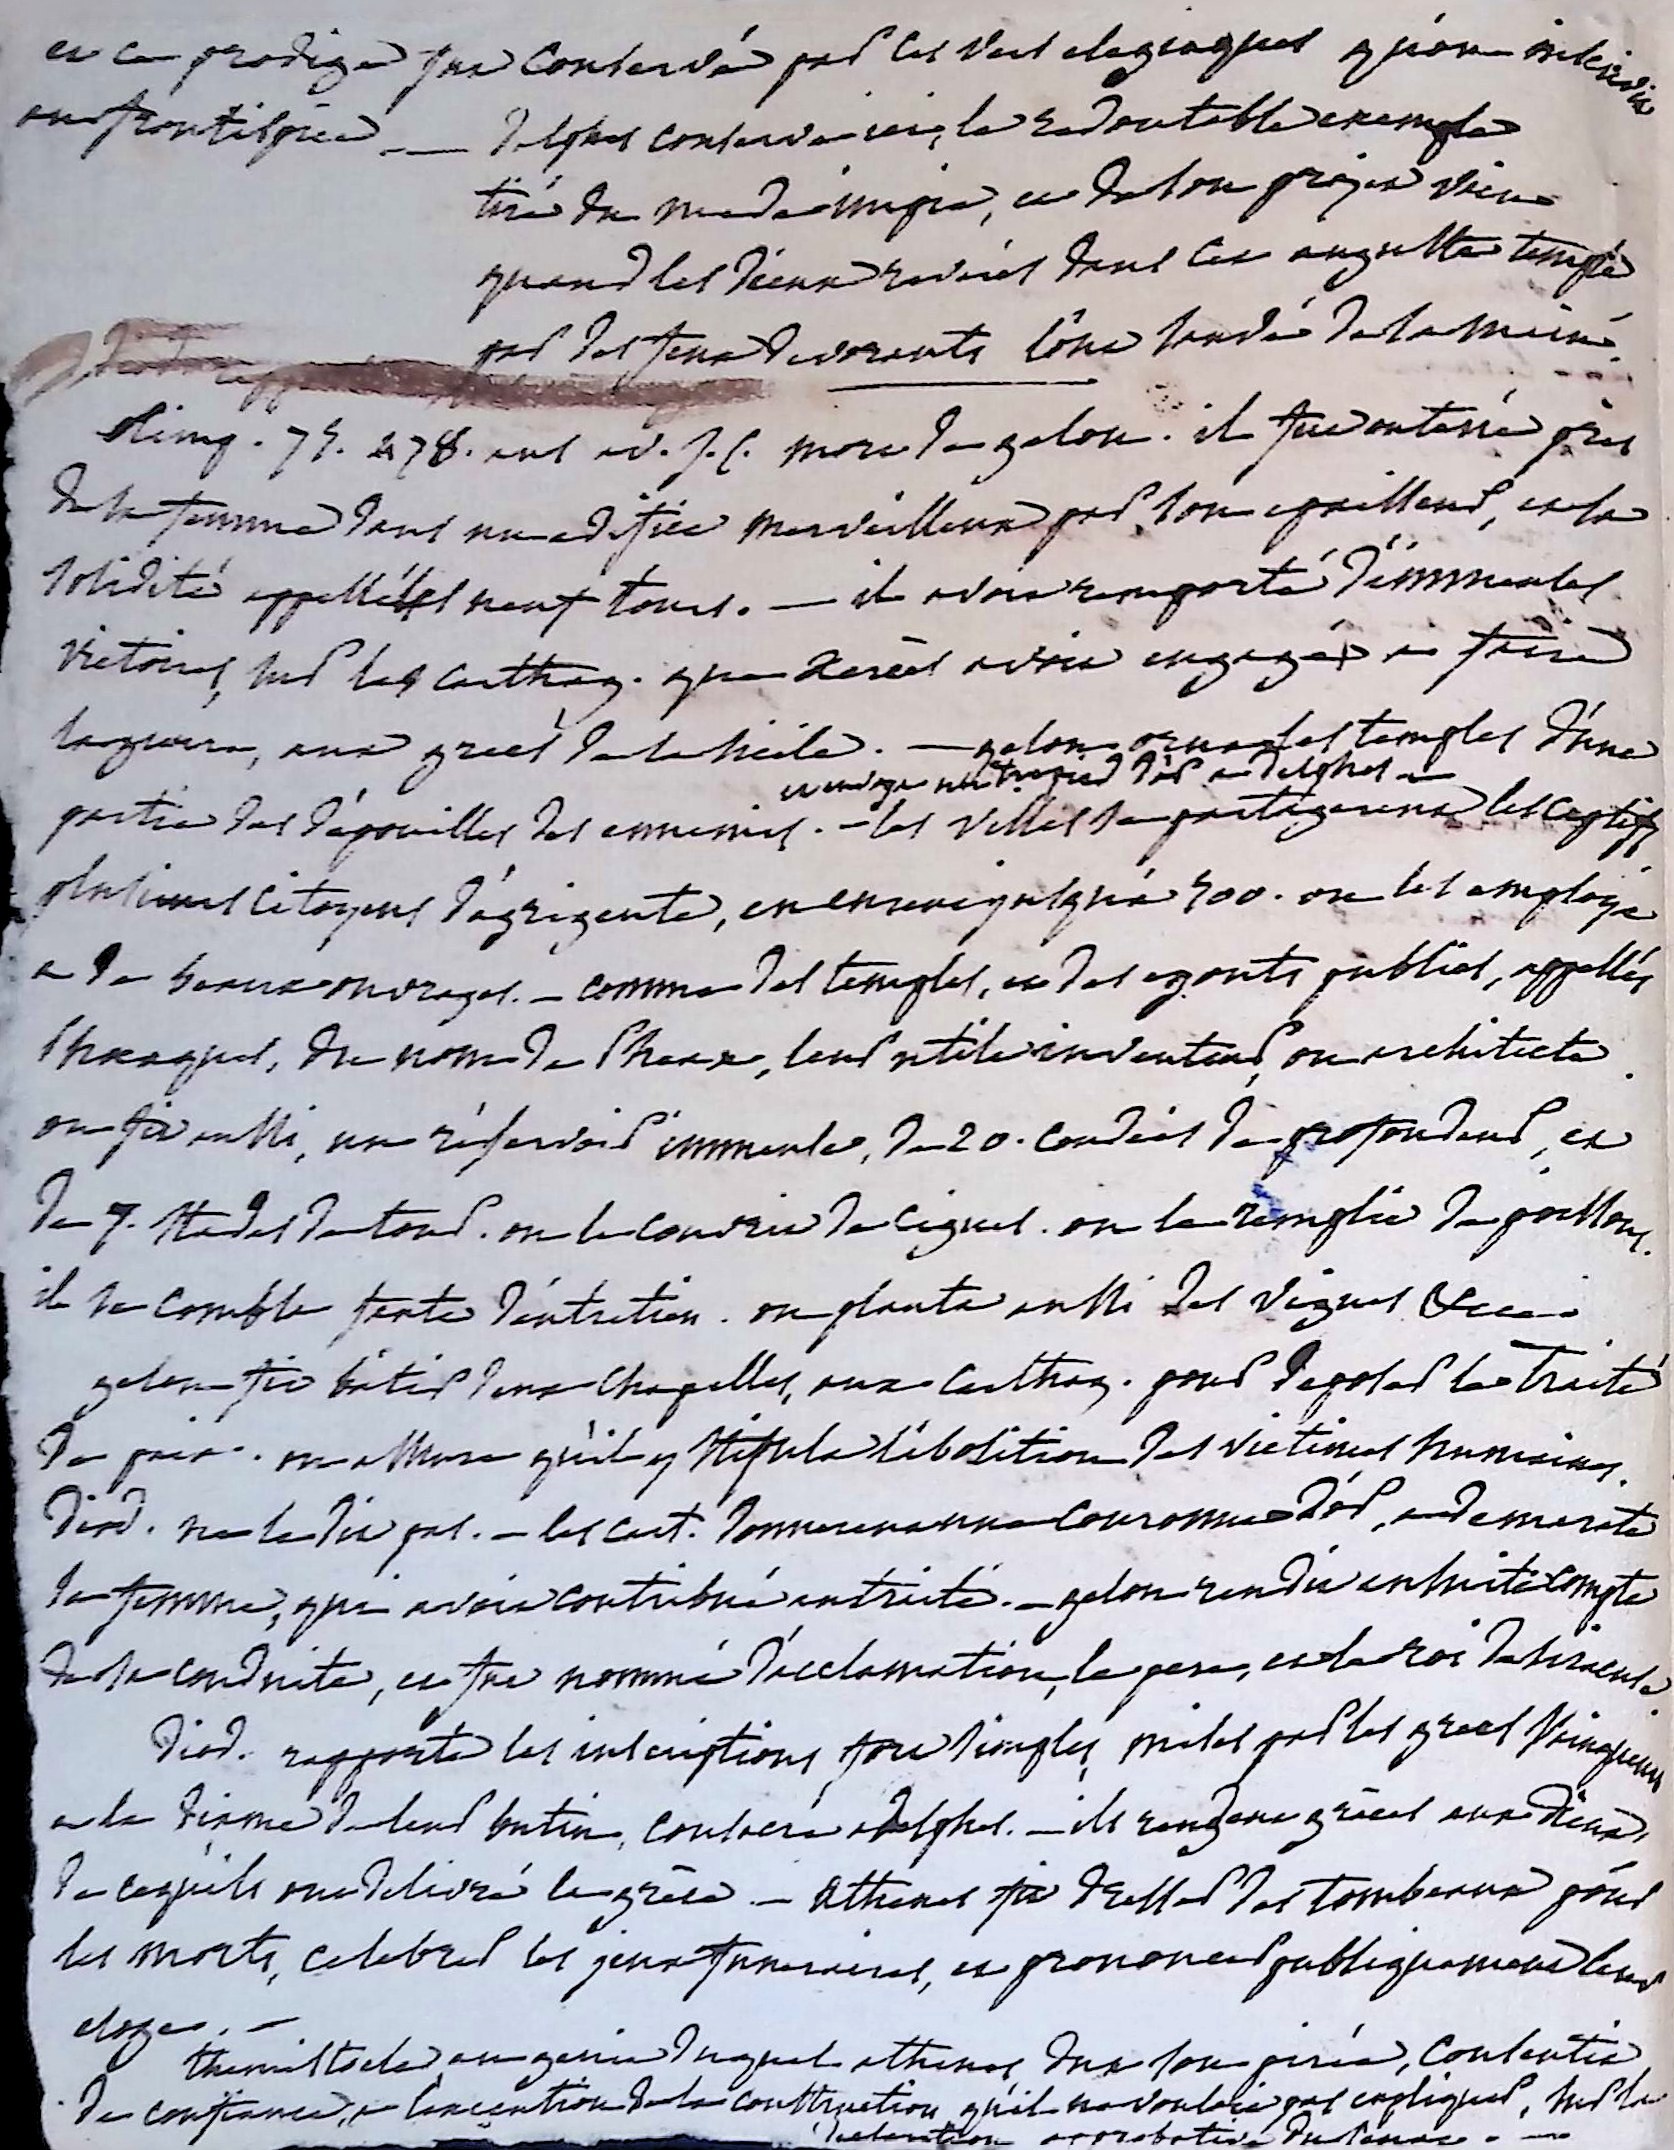 et ce prodige fut conservé par ces vers elegiaques qu'on inscrivit
au frontispice. — Delphes conserve ici, le redoutable exemple
tiré du mede impie, et de son projet vain
quand les dieux reverés dans cet auguste temple
par des feux devorants l'ont sauvé de sa main.
olimp. 75. 478. ans av. J.C. mort de gelon. il fut enterré près
de sa femme dans un edifice merveilleux par son epaisseur, et sa
solidité appellé les neuf tours. — il avoit remporté d'immenses
victoires, sur les carthag. que xercès avoit engagés a faire
la guerre, aux grecs de la sicile. — gelon orna les temples d'une
et envoya un trepied d'or a delphes —
partie des dépouilles des ennemis. — les villes se partagerent les captifs
plusieurs citoyens d'agrigente, en eurent jusqu'à 500. on les employa
a de beaux ouvrages. — comme des temples, et des egouts publics, appellés
Pheaques, du nom de Pheax, leur utile inventeur, ou architecte.
on fit aussi, un réservoir immense, de 20. coudées de profondeur, et
de 7. stades de tour. on le couvrit de cignes. on le remplit de poissons.
il se combla faute d'entretien. on planta aussi des vignes &c
gelon fit batir deux chapelles, aux carthag. pour deposer le traité
de paix. on assure qu'il y stipula l'abolition des victimes humaines.
Diod. ne le dit pas. — les cart. donnerent une couronne d'or, a demarate
sa femme, qui avoit contribué au traité. — gelon rendit ensuite compte
de sa conduite, et fut nommé d'acclamation, le pere, et le roi de siracuse.
Diod. rapporte les inscriptions fort simples, mises par les grecs vainqueurs
a la dixme de leur butin, consacré a delphes. — ils rendent grâces aux dieux,
de ce qu'ils ont delivré la grèce. — Athenes fit dresser des tombeaux pour
les morts, celebrer les jeux funeraires, et prononcer publiquement leur
eloge. —
themistocle, au genie duquel athenes, dut son pirée, consentit
de confiance, a l'execution de la construction qu'il ne vouloit pas expliquer, sur la
declaration approbative du senat. —